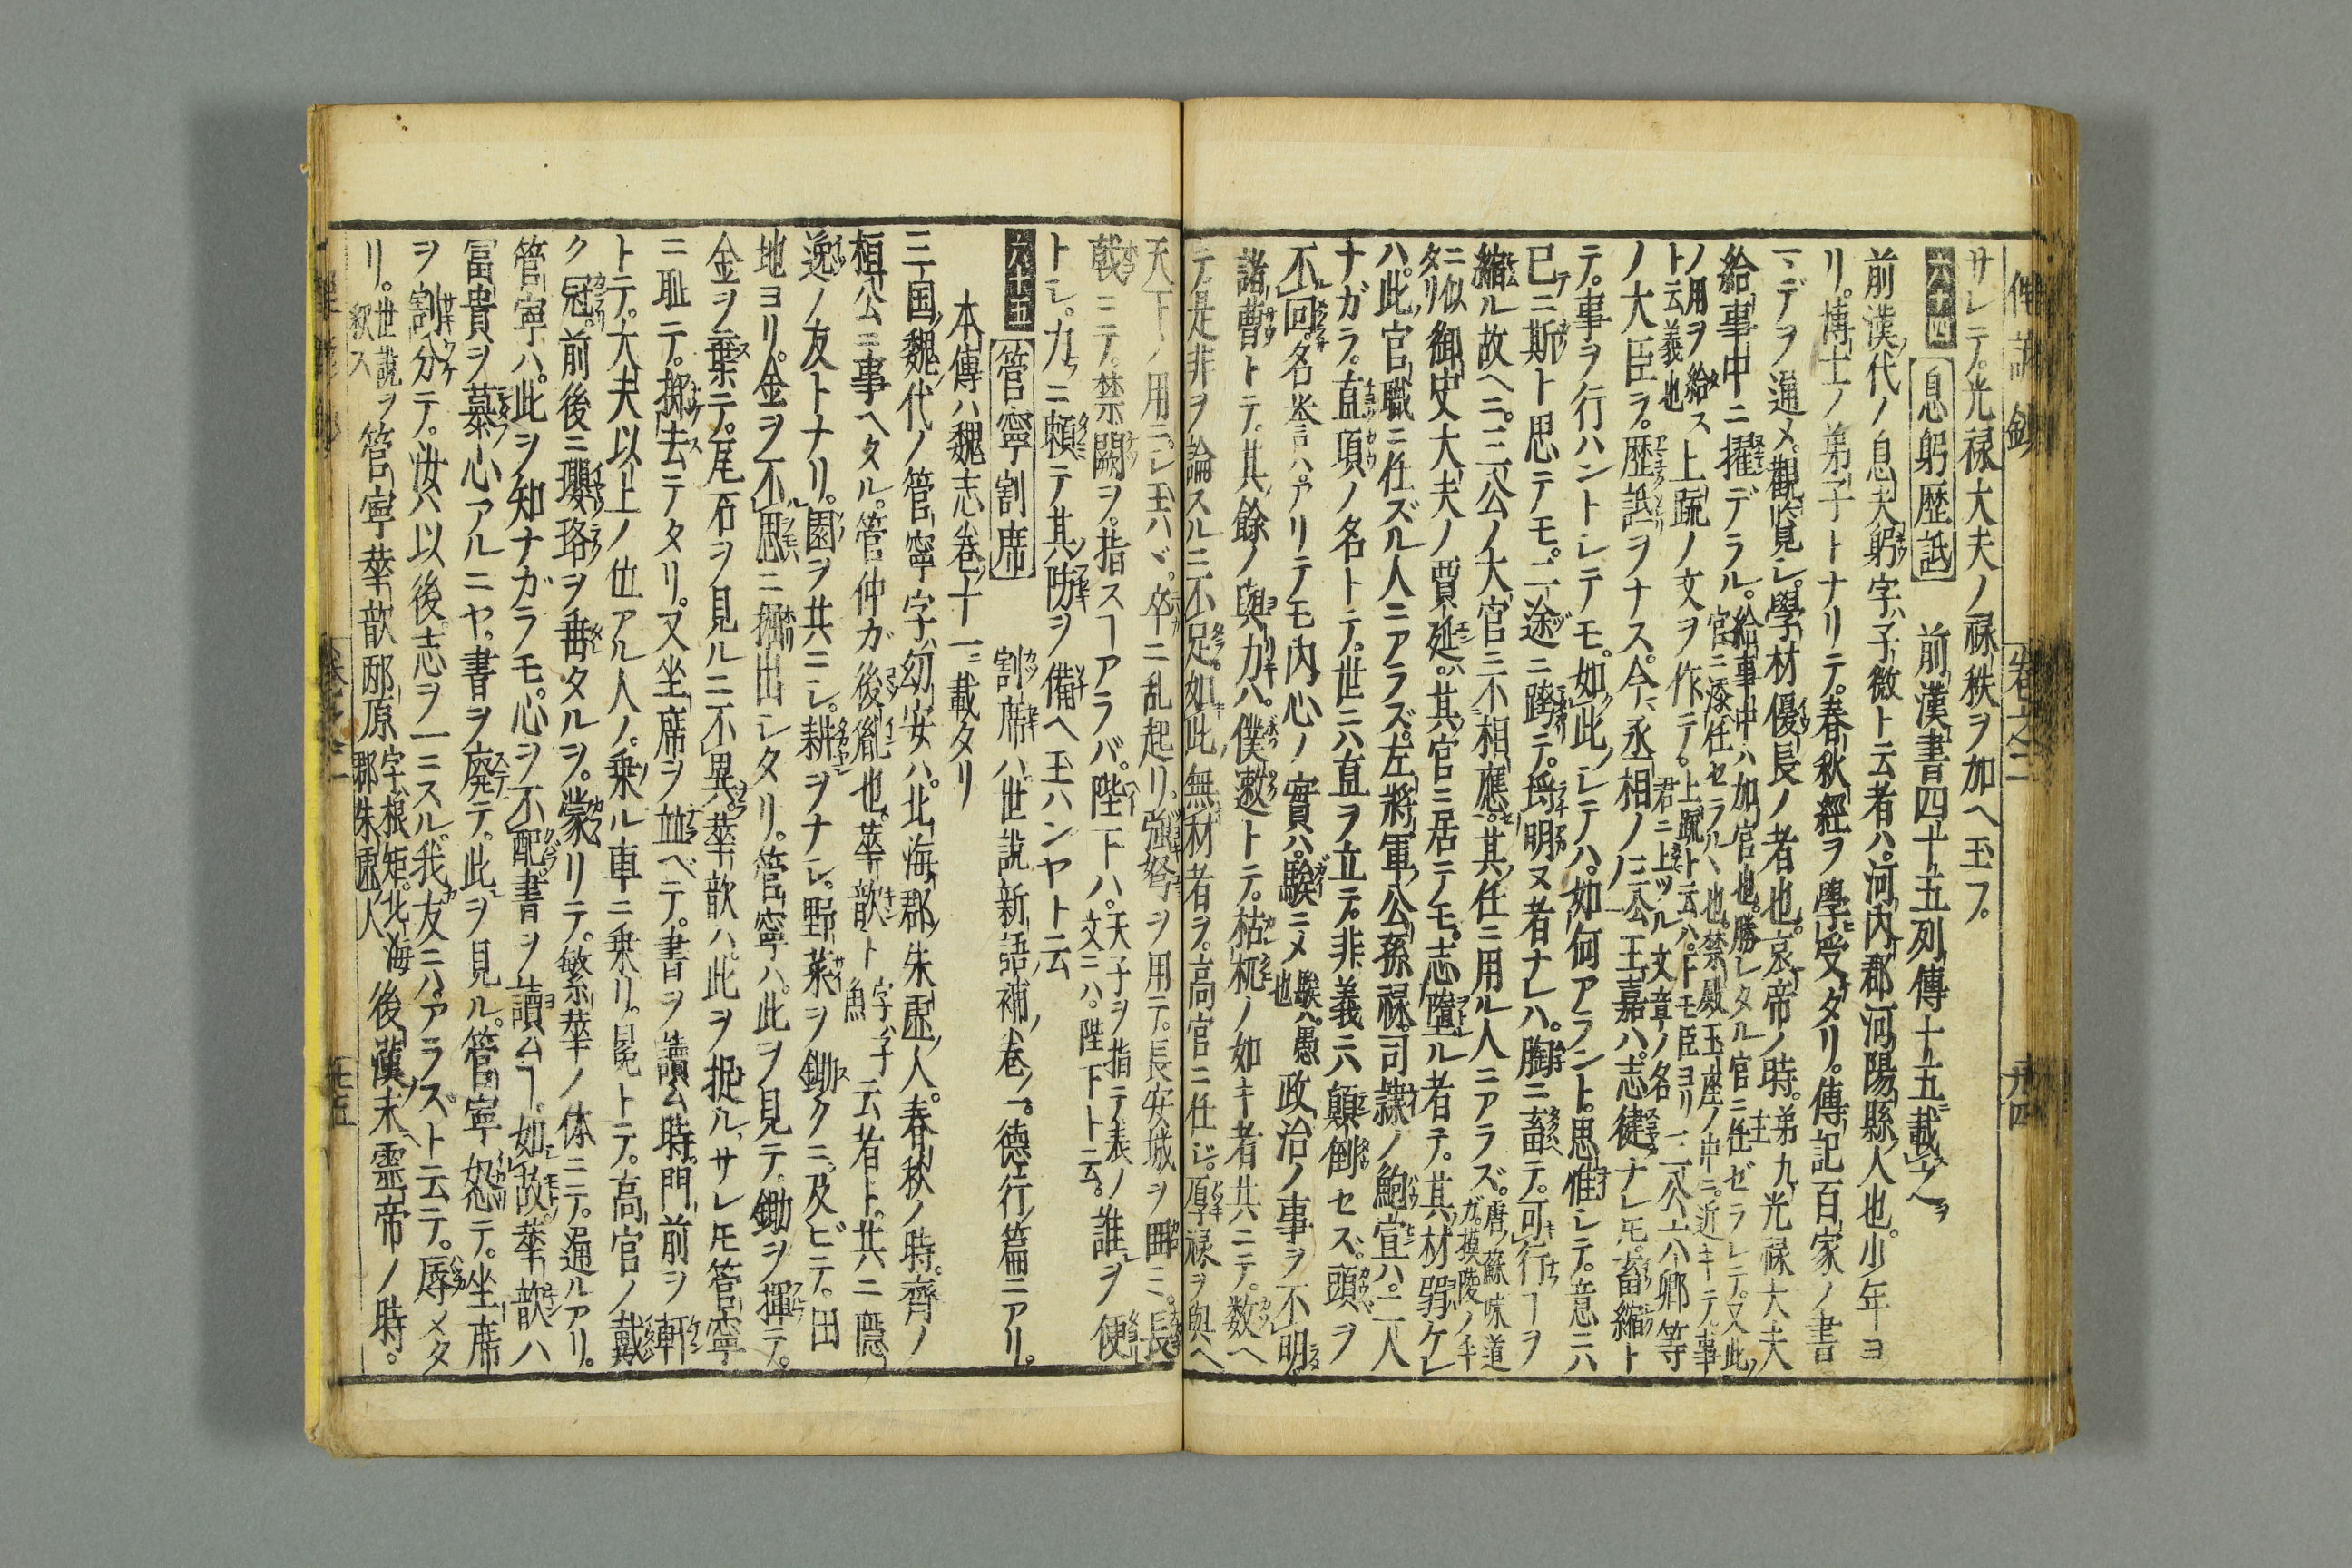 サレテ。光禄大夫ノ禄秩ヲ加ヘ玉フ。
六十四 息躬歴詆 前漢書四十五列傳十五ニ載タヘヲ
前漢代ノ息夫躬字ハ子微ト云者ハ。河内郡河陽縣人也。少年ヨ
リ。博士ノ弟子トナリテ。春秋經ヲ學受タリ。傳記百家ノ書
マデヲ通メ。觀覧シ。學材優長ノ者也。哀帝ノ時。第九主光禄大夫
給事中ニ擢デラル。給事中ハ加官也。勝レタル官ニ任ゼラレテ。又此ノ官ニ添任セラルヽ也。禁殿玉座ノ中ニ。近キテ事
ノ用ヲ給スト云義也上疏ノ文ヲ作テ。上疏ト云ハ。下モ臣ヨリ君ニ上ツル文章ノ名三公六卿等
ノ大臣ヲ。歴詆ヲナス。今ニ丞相ノ三公王嘉ハ。志健ナレ𪜈。畜縮ト
テ。事ヲ行ハントシテモ。如此シテハ。如何アラント。思惟シテ。意ニハ
已ニ斯ト思テモ。二途ニ蹐テ。埒明ヌ者ナレハ。胸ニ畜テ。可行ヿヲ
縮ル故ヘニ。三公ノ大官ニ不相應。其任ニ用ル人ニアラズ。唐ノ蘇味道ガ。摸陵ノ手
ニ似タリ御史大夫ノ賈延ハ。其官ニ居テモ。志墮ル者テ。其材弱ケレ
ハ。此官職ニ任ズル人ニアラズ。左將軍公孫禄。司隷ノ鮑宣ハ。二人
ナガラ。直項ノ名トテ。世ニハ直ヲ立テ。非義ニハ顛倒セズ。頭ヲ
不回。名誉ハアリテモ内心ノ實ハ。騃ニメ騃ハ愚也政治ノ事ヲ不明。
諸曹トテ。其餘ノ與力ハ。僕遬トテ。枯柅ノ如キ者共ニテ。数ヘ
テ是非ヲ論スルニ不足。如此無材者ヲ。高官ニ任ジ。厚禄ヲ與ヘ
天下ノ用ニシ玉ハヾ。卒ニ乱起リ。強弩ヲ用テ。長安城ヲ囲ミ。長
戟ニテ。禁闕ヲ。指スヿアラバ。陛下ハ。天子ヲ指テ表ノ文ニハ。陛下ト云。誰ヲ便
トシ。力ニ頼テ其防ヲ備ヘ玉ハンヤト云
六十五 管寧割席 割席ハ世說新語補ノ巻ノ一。德行篇ニアリ。
本傳ハ魏志巻十一ニ載タリ
三国魏ノ代ノ管寧字ハ幼安ハ。北海郡ノ朱虚人。春秋ノ時。齊ノ
桓公ニ事ヘタル。管仲ガ後胤也。華歆ト字ハ子魚云者ト。共ニ隱
逸ノ友トナリ。園ヲ共ニシ。耕ヲナシ。野菜ヲ鋤クニ。及ビテ。田
地ヨリ。金ヲ不思ニ掘出シタリ。管寧ハ。此ヲ見テ。鋤ヲ揮テ。
金ヲ棄テ。尾石ヲ見ルニ不異。華歆ハ。此ヲ捉ル。サレ𪜈管寧
ニ耻テ。擲去テタリ。又坐席ヲ並ベテ。書ヲ讀ム時。門前ヲ軒
トテ。大夫以上ノ位アル人ノ。乗ル車ニ乗リ。冕トテ。高官ノ戴
ク冠。前後ニ瓔珞ヲ垂タルヲ。蒙リテ。繁華ノ体ニテ。通ルアリ。
管寧ハ。此ヲ知ナガラモ。心ヲ不配。書ヲ讀ムヿ。如故。華歆ハ
冨貴ヲ慕心アルニヤ。書ヲ廢テ。此ヲ見ル。管寧怒テ。坐席
ヲ割分テ。汝ハ以後志ヲ一ニスル我友ニハ。アラズト云テ。辱メタ
リ。世說ヲ釈ス管寧華歆邴原字ハ根矩。北海郡朱虚人後漢末靈帝ノ時。